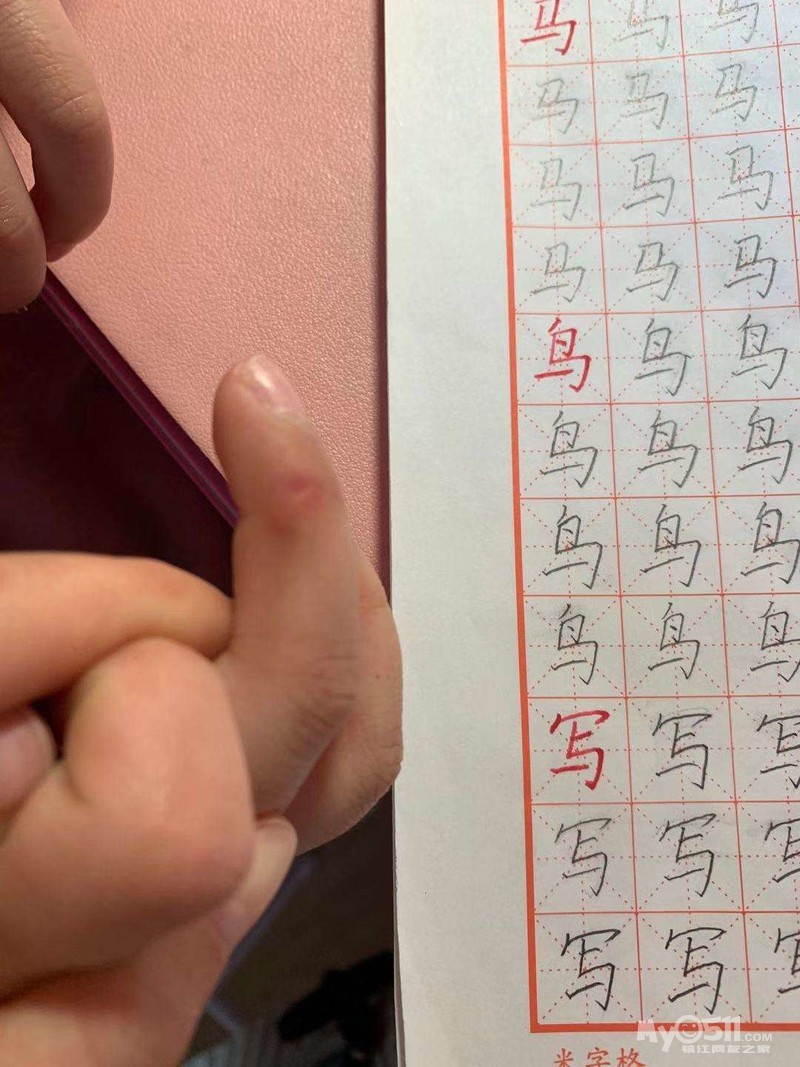 马 马 马
马 马 马
马 马 马
马 马 马
鸟 鸟 鸟
鸟 鸟 鸟
鸟 鸟 鸟
鸟 鸟 鸟
写 写 写
写 写 写
写 写 写
米字格
My0511.COM
镇江网友之家